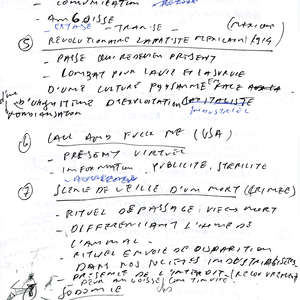 - COMMUNICATION -
- ANGOISSE
- EXTASE - TRANSE -
⑤ REVOLUTIONNAIRE ZAPATISTE MEXICAIN 1914
- PASSE QUI REDEVIENT PRESENT
- COMBAT POUR LA VIE ET LA SURVIE
D'UNE CULTURE PAYSANNE FACE
D'EXPLOITATION CAPITALISTE
INDUSTRIEL
⑥ AND FUCK ME (USA)
- PRÉSENT VIRTUEL
- INFORMATION, PUBLICITE, STERILITE
⑦ SCENE DE VEILLE D'UN MORT (CRIMEE)
- RITUEL DE PASSAGE: VIE → MORT
- DIFFERENCIANT L'HOMME DE
L'ANIMAL -
- RITUEL EN VOIE DE DISPARITION
DANS NOS SOCIETES INDUSTRIALISEES
- PRESENCE DE L'INTERDIT
⑧ SODOMIE